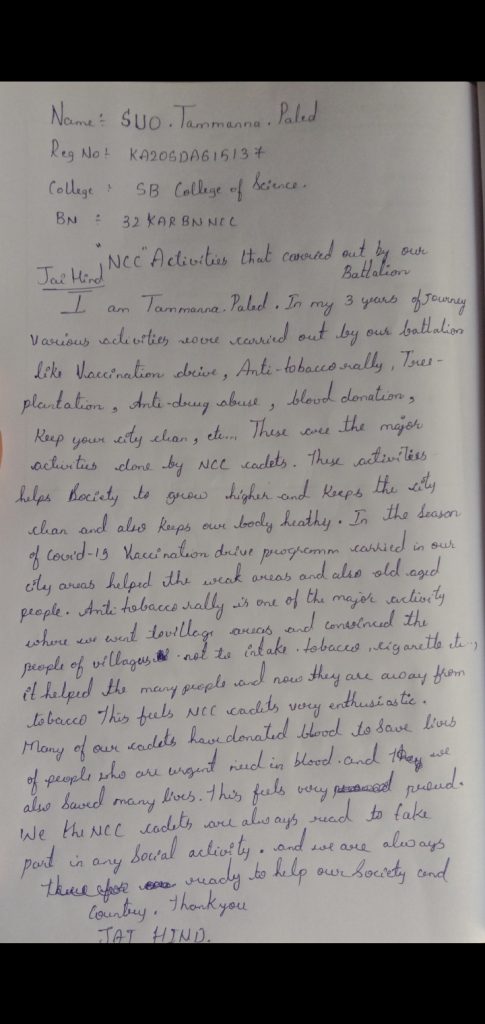 Name: SUO. Tammanna. Paled
Reg No: KA20SDA615137
College: SB College of Science.
BN : 32 KAR BN NCC
"NCC" Activities that carried out by our
Jai Hind Battalion
I am Tammanna Paled. In my 3 years of Journey
Various activities were carried out by our battalion
like Vaccination drive, Anti-tobacco rally, Tree-
plantation, Anti-drug abuse, blood donation,
Keep your city clean, etc... These are the major
activities done by NCC cadets. These activities
helps Society to grow higher and Keeps the city
clean and also Keeps our body heathy. In the Season
of Covid-19 Vaccination drive programm carried in our
city areas helped the weak areas and also old aged
people. Anti tobacco rally is one of the major activity
where we went to village areas and convinced the
people of villages. not to intake tobacco, cigarette etc..,
it helped the many people and now they are away from
tobacco This feels NCC cadets very enthusiastic.
Many of our cadets have donated blood to Save lives
of people who are urgent need in blood. and they we
also Saved many lives. This feels very proud.
We the NCC cadets are always read to take
part in any Social activity. and we are always
there ready to help our Society and
Country. Thank you
JAI HIND.